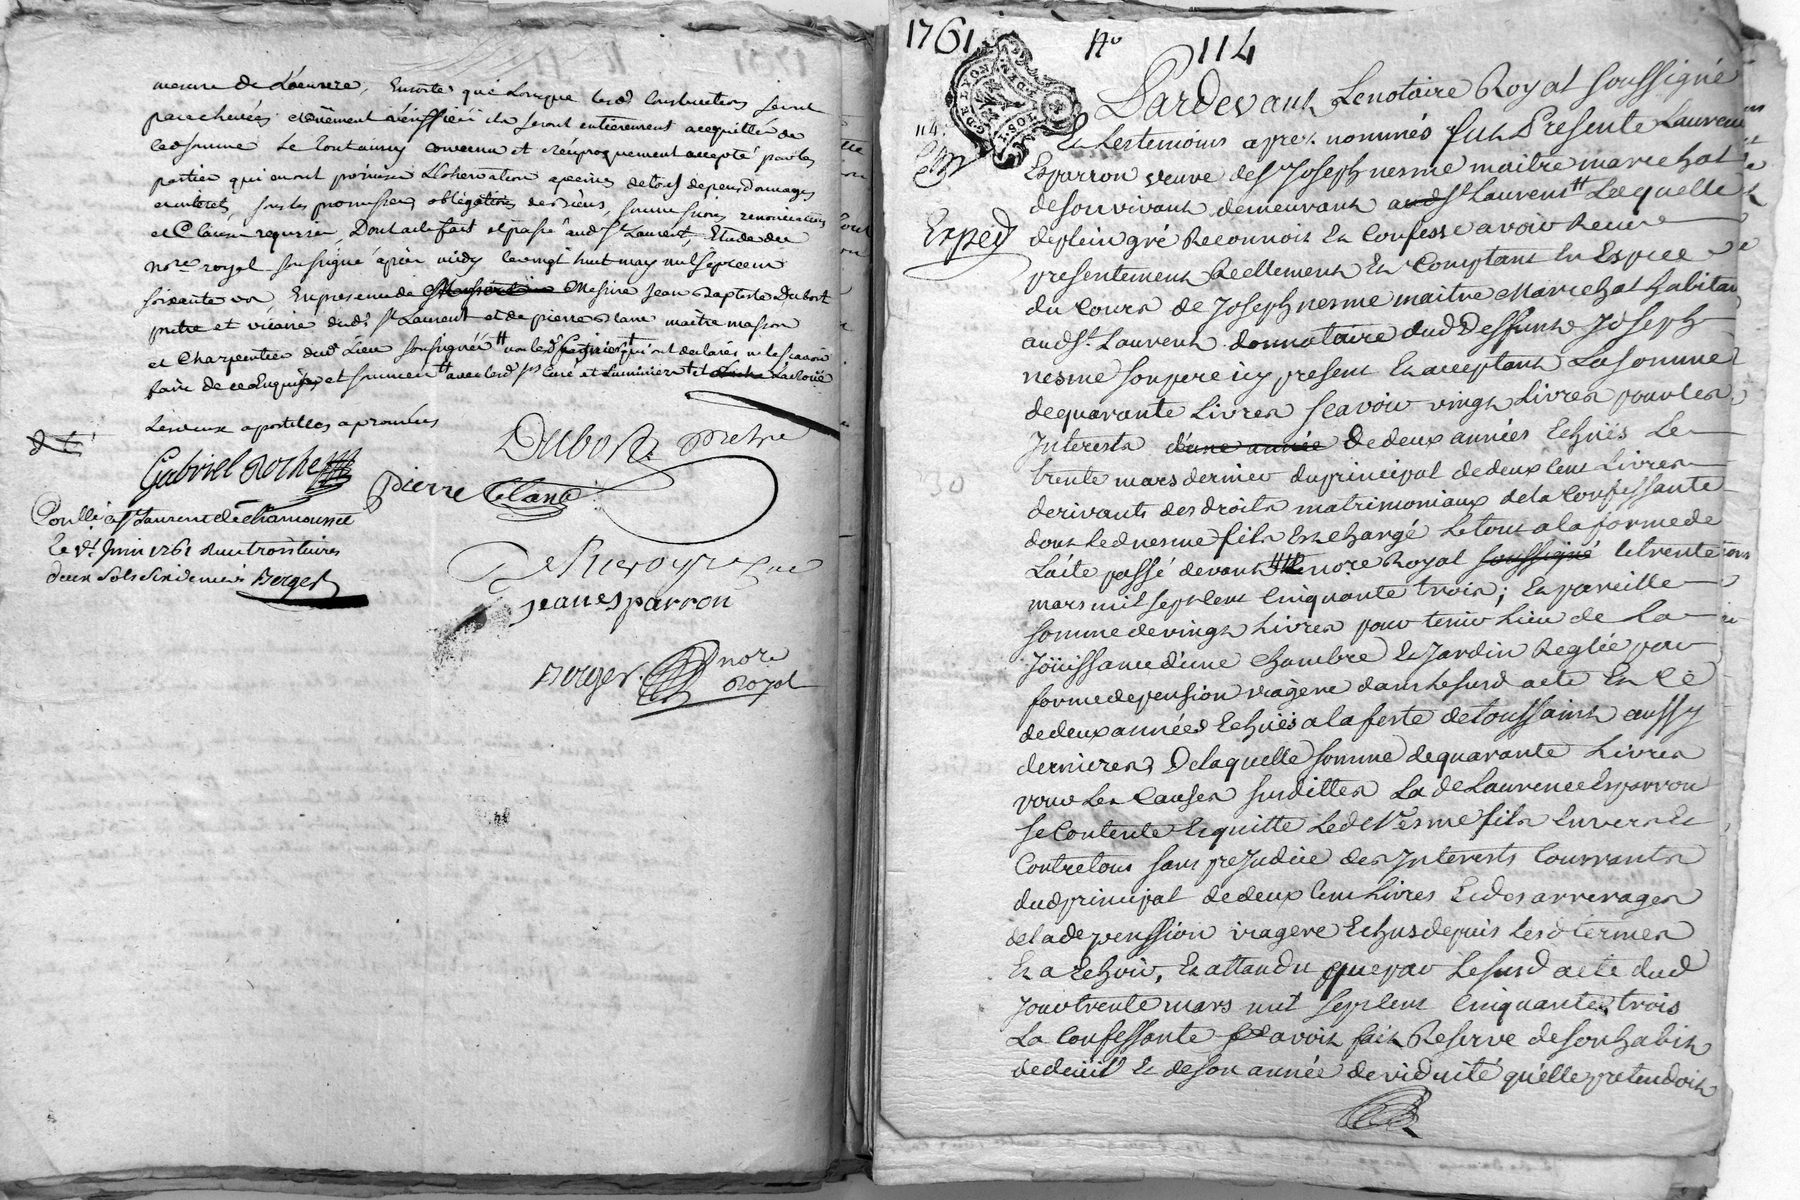 mesure de L'oeuvre, Ensorte que Lorsque lesd Constructions seront
parachevées et duëment ils seront entierement acquittés de
lad somme Le tout ainsy convenu et reciproquement accepté par les
parties qui en ont promis L'observation a peines de tous depens Dommages
et interets, sous les promissions, obligations des biens, soumissions, renonciations
et Clauses requises, Dont acte fait et passé aud St Laurent, Etude du
nore royal soussigné après midy le vingt huit may mil sept cent
soixante un En presence de Messire Jean Baptiste Dubost
prêtre et vicaire dud St Laurent et de pierre Blanc maitre masson
et Charpentier dud Lieu soussignés non lesd qui ont declarés ne le scavoir
faire de ce enquis et sommés avec lesd srs Curé et Luminiers et
Les deux apostilles aprouvées
Dubost pretre
Gabriel Roche
pierre Blanc
Conllé a St Laurent de Chamousset
le 1er Juin 1761 Reçu trois livres
deux sols six deniers Berger
jean esparron
Berger nore
Royal
1761 No 114
GDE LYON
Pardevant Le notaire Royal soussigné
114
Et Les temoins apres nommés fut Presente Laurence
Esparron veuve de sr Joseph nesme maitre marechal
de son vivant demeurant aud St Laurent Laquelle
Exped
de plein gré Reconnoit Et Confesse avoir Receu
presentement Reellement Et Comptant En Espece
du Cours de Joseph nesme maitre Marechal habitant
aud St Laurent donnataire dud Deffunt Joseph
nesme son pere icy present Et acceptant La somme
de quarante Livres scavoir vingt Livres pour les
Interests d'une année De deux années Echuës Le
trente mars dernier du principal de deux Cent Livres
derivants des droits matrimoniaux de la Confessante
dont Led nesme fils Est chargé Le tout a la forme de
L'acte passé devant nore Royal soussigné le trente
mars mil sept Cent Cinquante trois; Et pareille
somme de vingt Livres pour tenir Lieu de La
Joüissance d'une Chambre Et Jardin Reglée par
forme de pension viagere dans Le susd acte Et Ce
de deux années Echuës a la feste de toussaint aussy
dernieres, De laquelle somme de quarante Livres
pour Les Causes susdittes La de Laurence Esparron
se Contente Et quitte Led Nesme fils Envers Et
Contre tous sans prejudice des Interests Courrants
dud principal de deux Cent Livres Et des arrerages
de lade penssion viagere Echus depuis lesd termes
Et a Echoir, Et attandu que par Le susd acte dud
Jour trente mars mil sept Cent Cinquante trois
La Confessante avoit fait Reserve de son habit
de deüil Et de son année de viduité qu'elle pretendoit